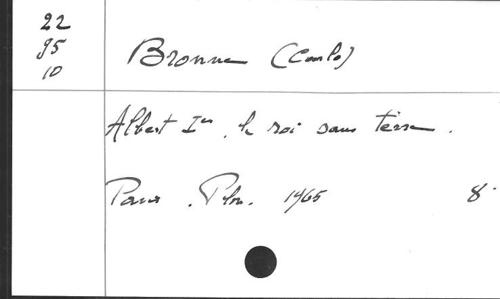 22
95
10
Bronne (Carlo)
Albert Ier, le roi sans terre.
Paris. Plon. 1965 8°